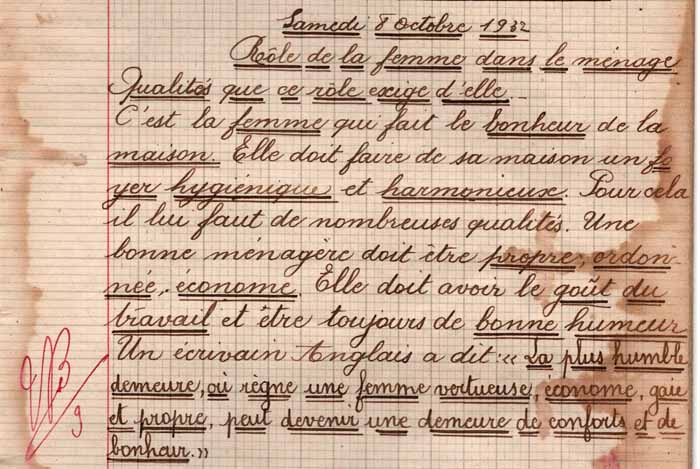 Samedi 8 Octobre 1932
Rôle de la femme dans le ménage
Qualités que ce rôle exige d'elle
C'est la femme qui fait le bonheur de la
maison. Elle doit faire de sa maison un fo
yer hygiénique et harmonieux. Pour cela
il lui faut de nombreuses qualités. Une
bonne ménagère doit être propre, ordon-
née, économe. Elle doit avoir le goût du
travail et être toujours de bonne humeur
Un écrivain Anglais a dit : « La plus humble
demeure, où règne une femme vertueuse, économe, gaie
et propre, peut devenir une demeure de conforts et de
bonheur. »